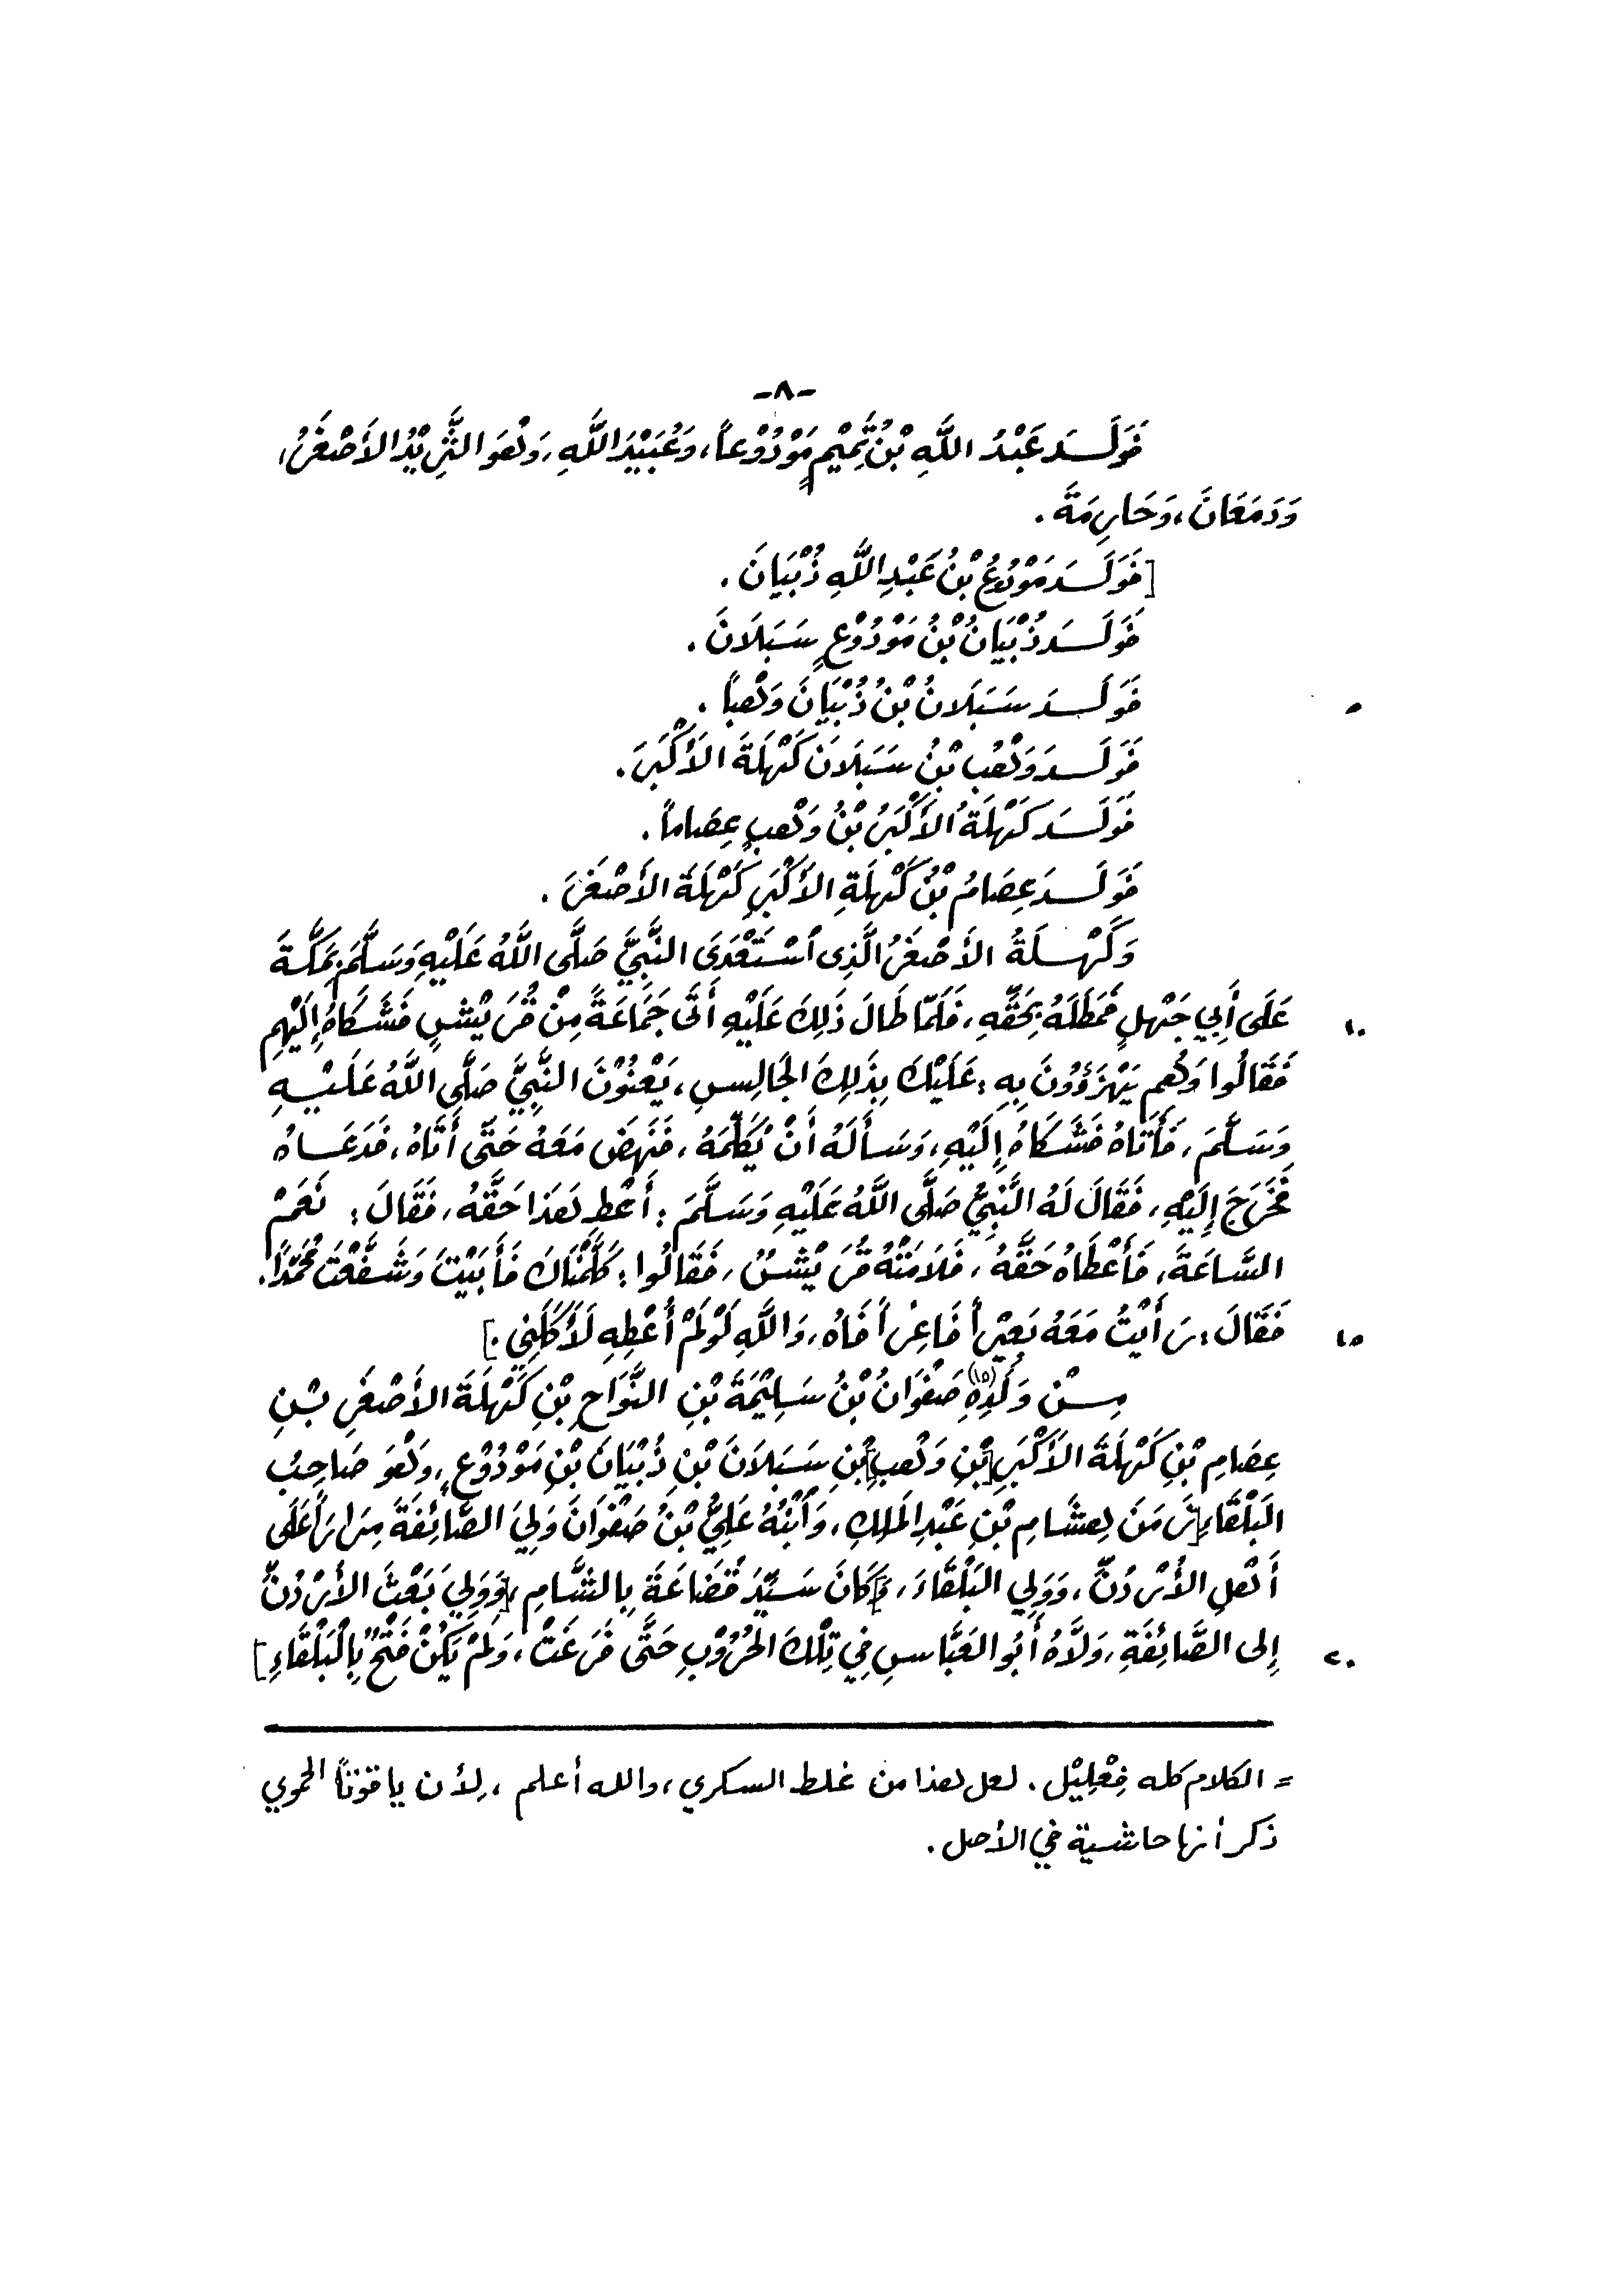 -٨-
فَوَلَـدَ عَبْدُ اللَّهِ بْنُ تَمِيْمٍ مَوْدُوْعاً، وَعُبَيْدَ اللَّهِ، وَهُوَ الثَّرِيْدُ الأَصْغَرُ،
وَدَمَعَانَ، وَحَارِمَةَ.
[فَوَلَـدَ مَوْدُوْعُ بْنُ عَبْدِ اللَّهِ ذُبْيَانَ.
فَوَلَـدَ ذُبْيَانُ بْنُ مَوْدُوْعٍ سَبَلَانَ.
٥ فَوَلَـدَ سَبَلَانُ بْنُ ذُبْيَانَ وَهْباً.
فَوَلَـدَ وَهْبُ بْنُ سَبَلَانَ كَهْلَةَ الأَكْبَرَ.
فَوَلَـدَ كَهْلَةُ الأَكْبَرُ بْنُ وَهْبٍ عِصَاماً.
فَوَلَـدَ عِصَامُ بْنُ كَهْلَةِ الأَكْبَرِ كَهْلَةَ الأَصْغَرَ.
وَكَهْلَةُ الأَصْغَرُ الَّذِى ٱسْتَعْدَى النَّبِيَّ صَلَّى اللَّهُ عَلَيْهِ وَسَلَّمَ بِمَكَّةَ
١٠ عَلَى أَبِي جَهْلٍ فَمَطَلَهُ بِحَقِّهِ، فَلَمّا طَالَ ذَلِكَ عَلَيْهِ أَتَى جَمَاعَةً مِنْ قُرَيْشٍ فَشَكَاهُ إِلَيْهِمِ
فَقَالُوا وَهُم يَهْزَؤُونَ بِهِ: عَلَيْكَ بِذَلِكَ الجَالِسِ، يَعْنُوْنَ النَّبِيَّ صَلَّى اللَّهُ عَلَيْهِ
وَسَلَّمَ، فَأَتَاهُ فَشَكَاهُ إِلَيْهِ، وَسَأَلَهُ أَنْ يُكَلِّمَهُ، فَنَهَضَ مَعَهُ حَتَّى أَتَاهُ، فَدَعَـاهُ
فَخَرَجَ إِلَيْهِ، فَقَالَ لَهُ النَّبِيُّ صَلَّى اللَّهُ عَلَيْهِ وَسَلَّمَ: أَعْطِ هَذَا حَقَّهُ، فَقَالَ: نَعَمْ
السَّاعَةَ، فَأَعْطَاهُ حَقَّهُ، فَلَامَتْهُ قُرَيْشٌ، فَقَالُوا: كَلَّمْنَاكَ فَأَبَيْتَ وَشَفَّعْتَ مُحَمَّداً.
١٥ فَقَالَ: رَأَيْتُ مَعَهُ بَعِيْراً فَاغِراً فَاهُ، وَاللَّهِ لَوْ لَمْ أُعْطِهِ لَأَكَلَنِي.]
مِـنْ وَلَدِهِ(١٥) صَفْوَانُ بْنُ سَلِيْمَةَ بْنِ النَّوَاحِ بْنِ كَهْلَةَ الأَصْغَرِ بْـنِ
عِصَامِ بْنِ كَهْلَةَ الأَكْبَرِ [بْنِ وَهْبِ] بْنِ سَبَلَانَ بْنِ ذُبْيَانَ بْنِ مَوْدُوْعٍ، وَهْوَ صَاحِبُ
البَلْقَاءِ [زَمَنَ هِشَامِ بْنِ عَبْدِ المَلِكِ، وَٱبْنُهُ عَلِيُّ بْنُ صَفْوَانَ وَلِيَ الصَّائِفَةَ مِرَاراً عَلَى
أَهْلِ الأُرْدُنِّ، وَوَلِي البَلْقَاءَ، وَ] كَانَ سَيِّدَ قُضَاعَةَ بِالشَّامِ، [وَوَلِيَ بَعْثَ الأُرْدُنِّ
٢٠ إِلى الصَّائِفَةِ، وَلَّاهُ أَبُو العَبَّاسِ فِي تِلْكَ الحُرُوْبِ حَتَّى فَرَغَتْ، وَلَمْ يَكُنْ فَتْحٌ بِالْبَلْقَاءِ]
= الكلام كله فِعْلِيْل. لعل هذا من غلط السكري، والله أعلم، لِأن ياقوتاً الحموي
ذكر أنها حاشية في الأصل.